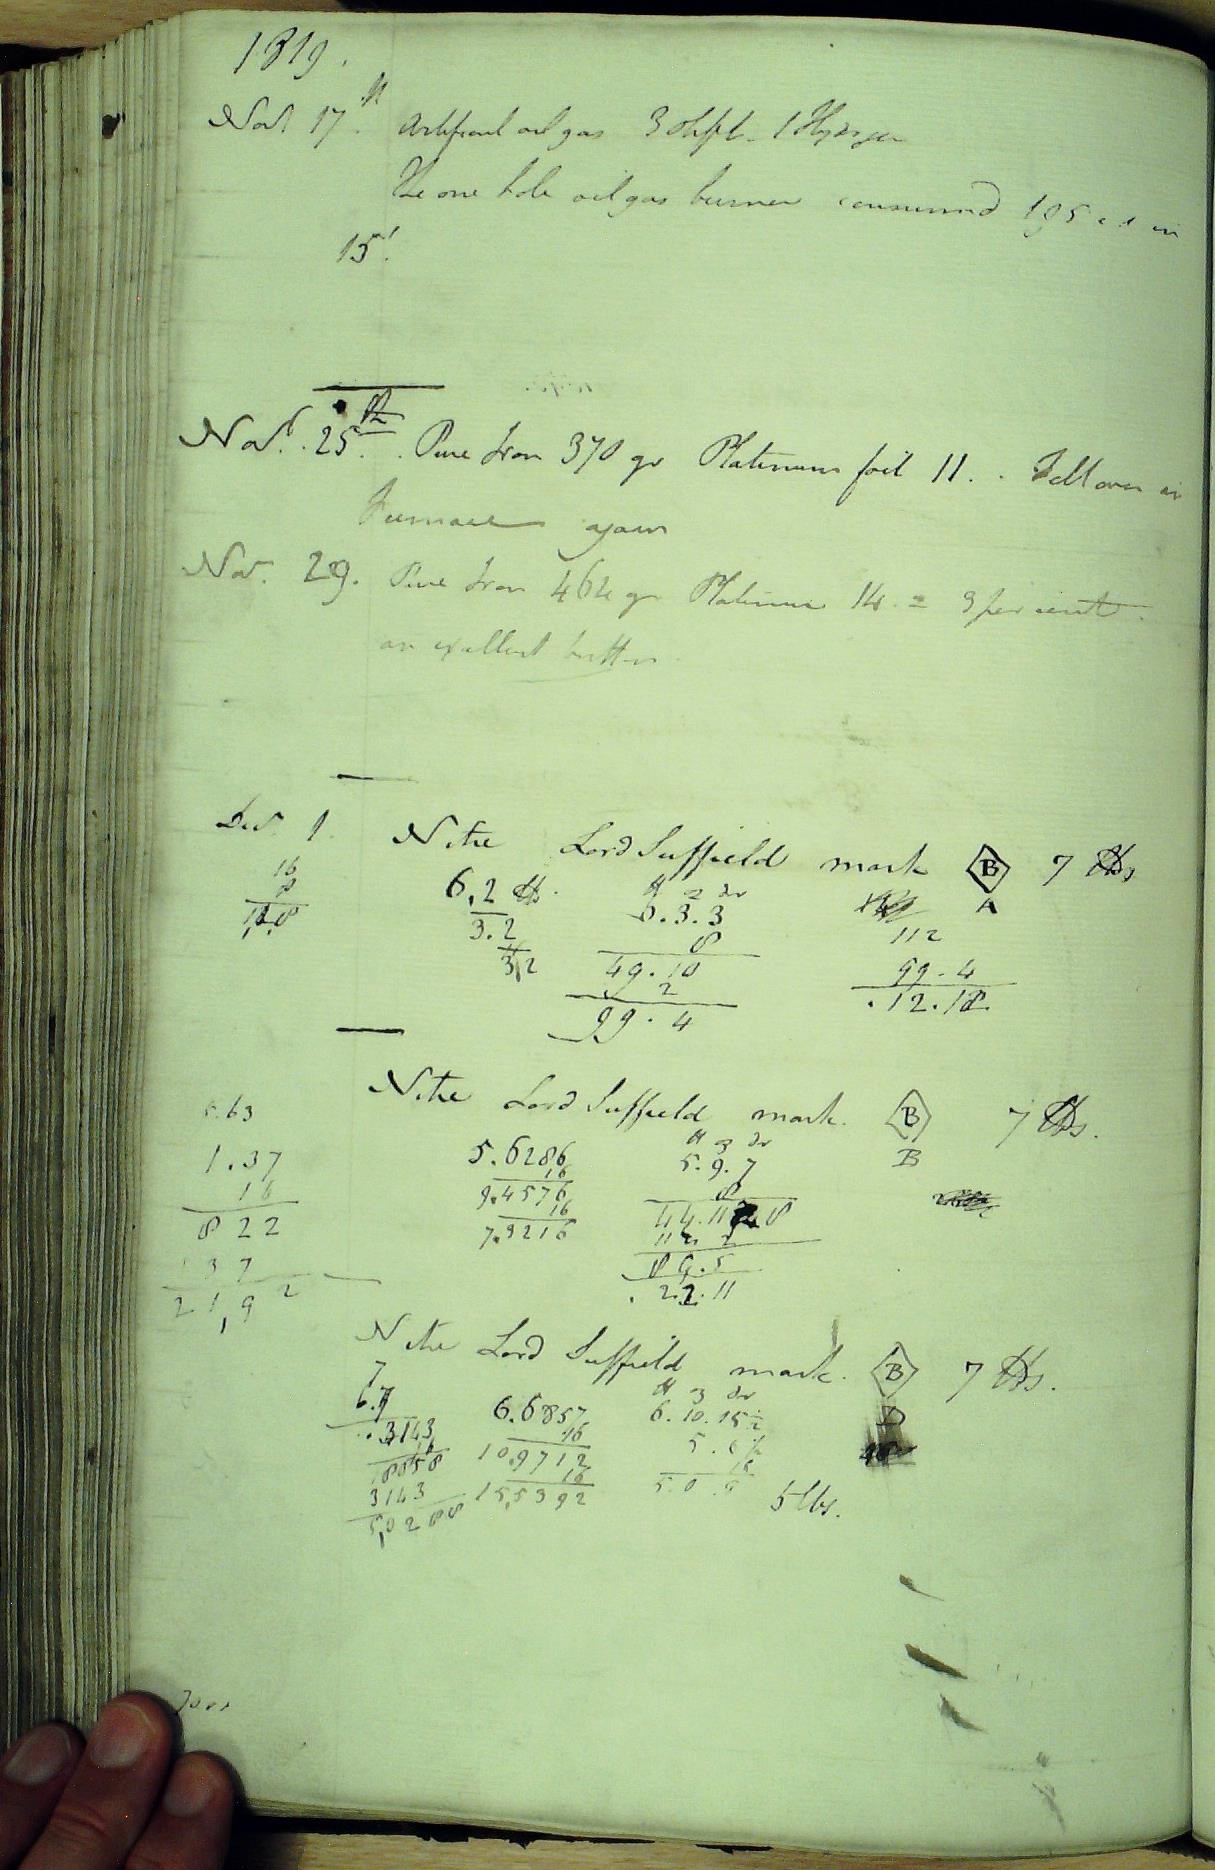 1819.
Nov 17th. Artificial oil gas 3 olefi. 1 Hydrogen
The one hole oil gas burner consumed 195 c i in
15'.
Nov. 25th. Pure Iron 370 gr Platinum foil 11. . Fell over in
Furnace again
Nov. 29. Pure Iron 464 gr Platinum 14 = 3 per cent
an excellent button
Dec. 1. Nitre Lord Suffield mark B 7 lbs
A
16
8
12.8
6.2 lbs.
3.2
3,2
6.3.3
8
49.10
2
99.4
112
99.4
.12.12
Nitre Lord Suffield mark. B 7 lbs.
B
.63
1.37
16
822
137
21,92
5.6286
16
9.4576
16
7.3216
5.9.7
8
44.11 8
112 2
89.5
.22.11
Nitre Lord Suffield mark. B 7 lbs.
D
7
6.7
.3143
16
18858
3143
5,0288
6.6857
16
10,9712
16
15,5392
6.10.15½
5.0½
16
5.0.5
5 lbs.